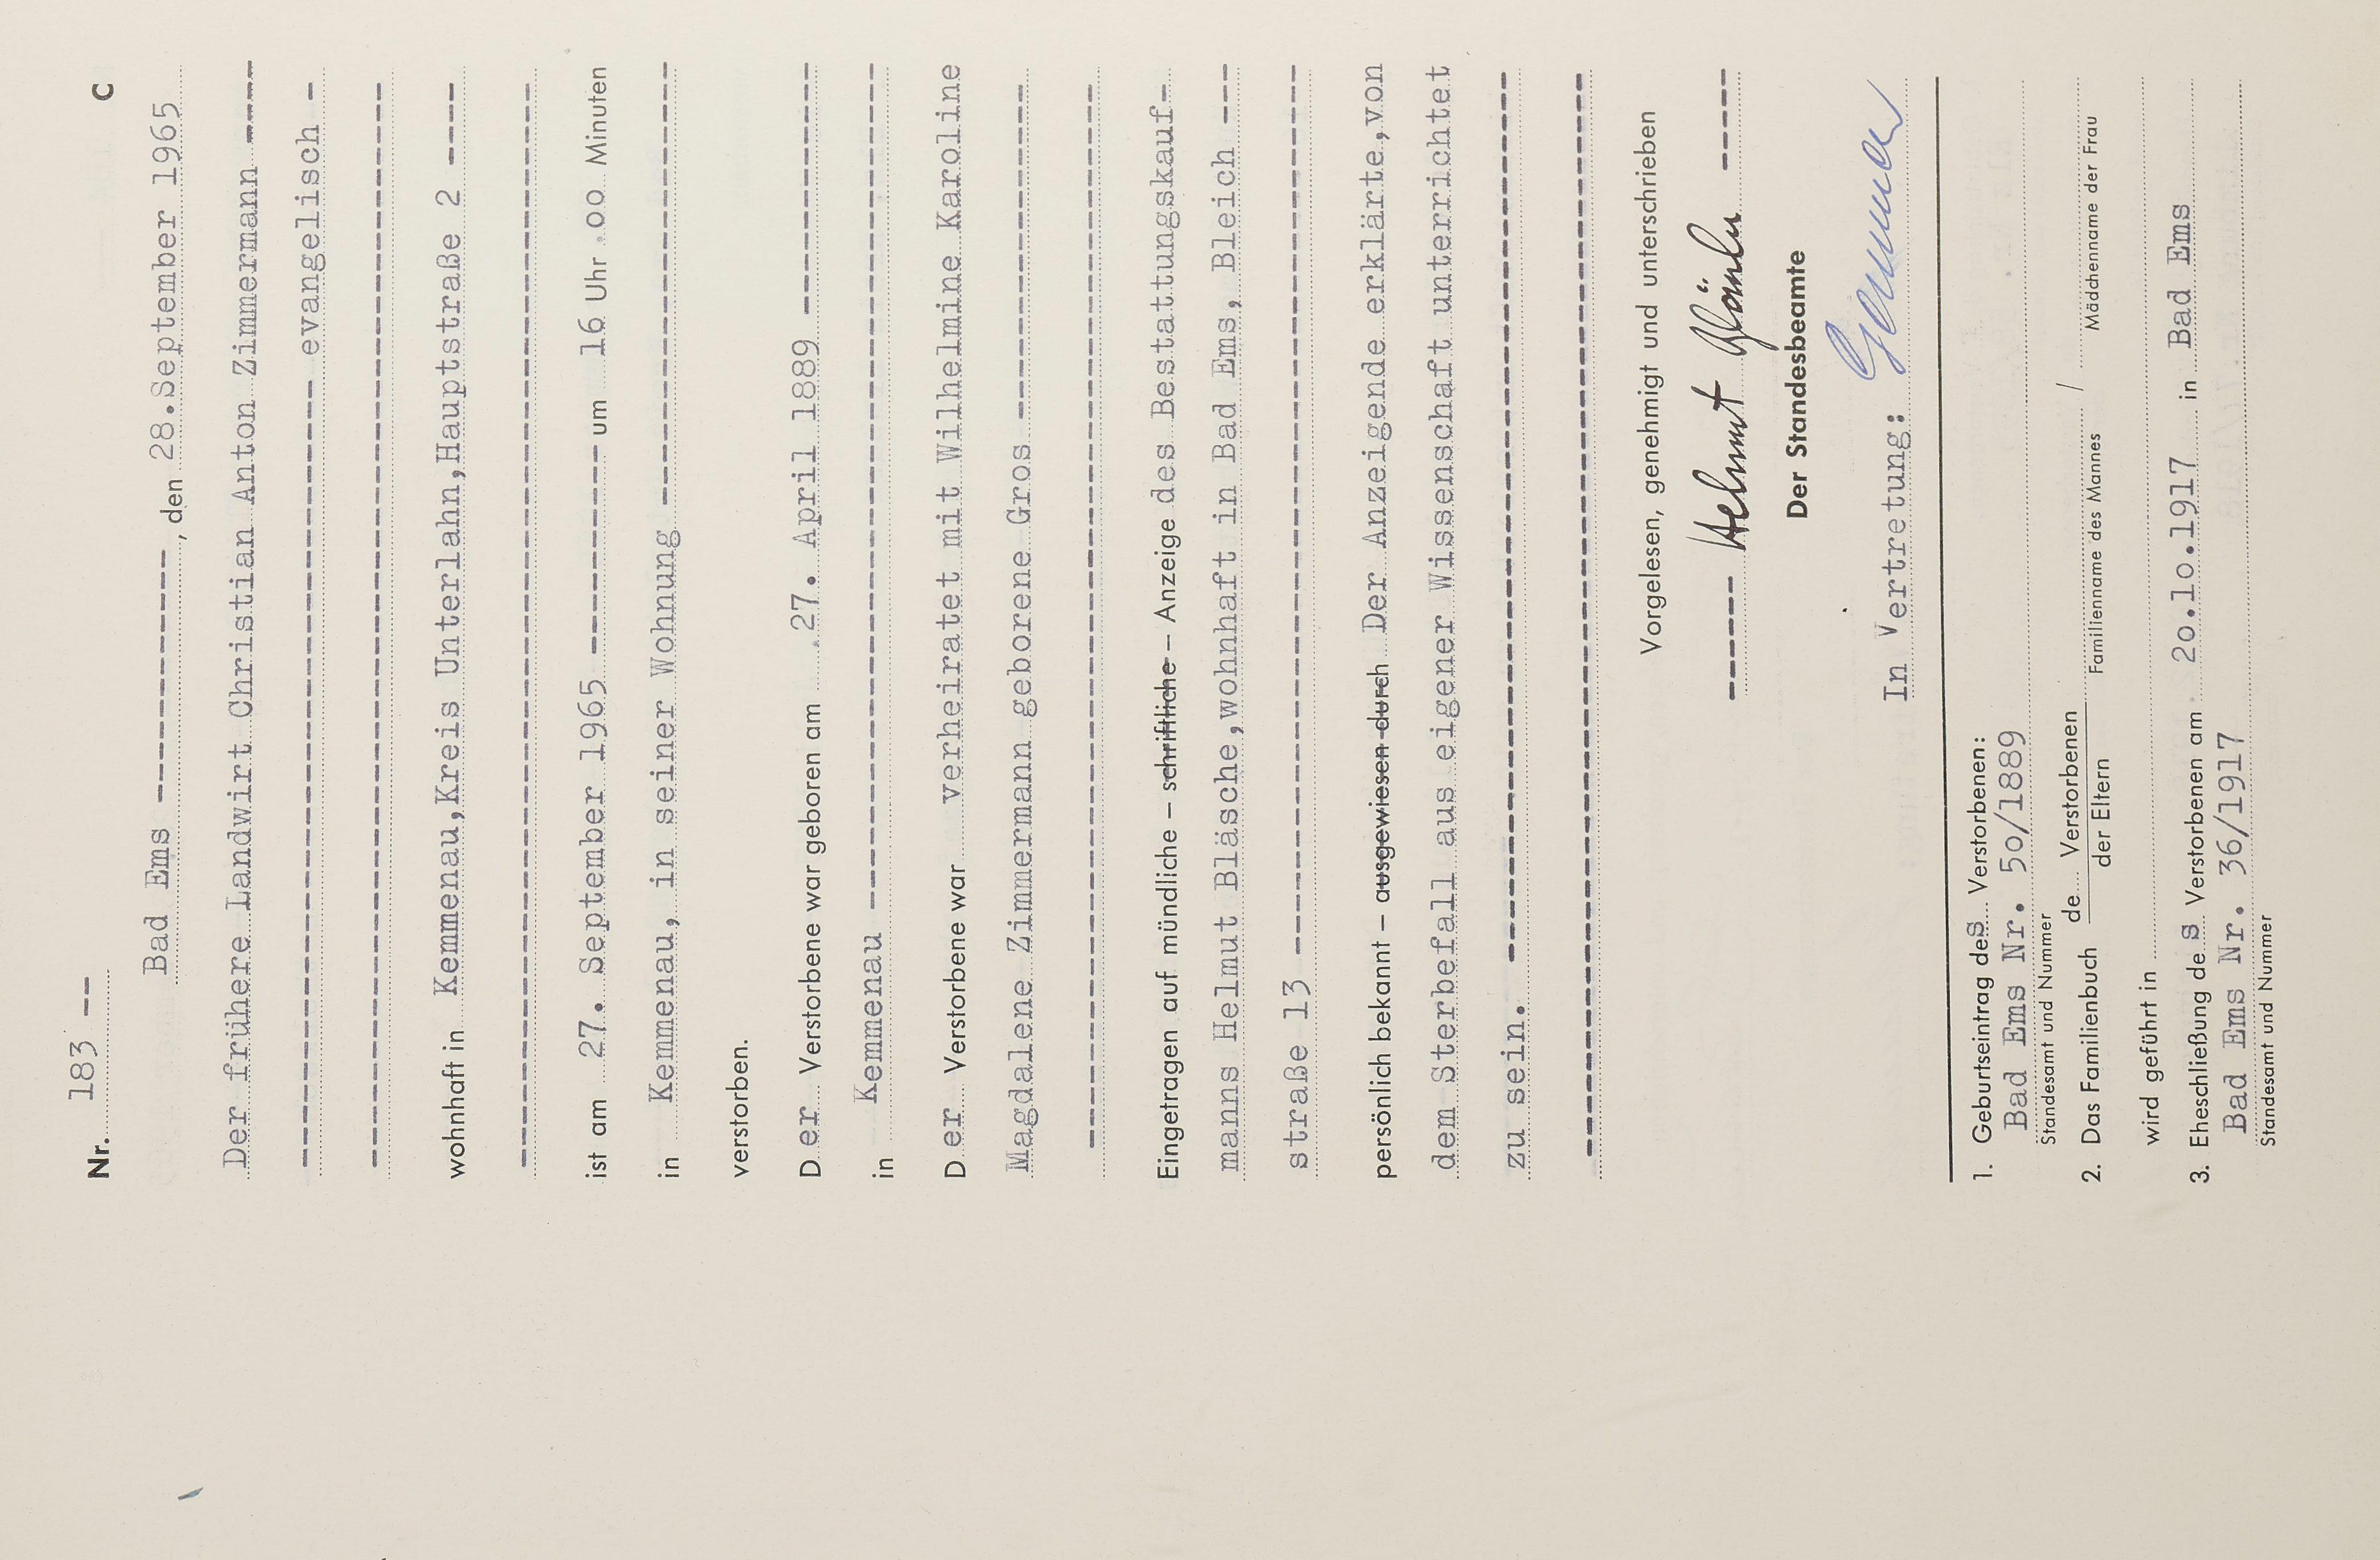 Nr. 183 -- C
Bad Ems ------------, den 28.September 1965
Der frühere Landwirt Christian Anton Zimmermann ----
------------------------------------ evangelisch -
--------------------------------------------------
wohnhaft in Kemmenau,Kreis Unterlahn,Hauptstraße 2 ----
--------------------------------------------------
ist am 27. September 1965 ---------- um 16 Uhr oo Minuten
in Kemmenau, in seiner Wohnung ---------------------
verstorben.
Der Verstorbene war geboren am 27. April 1889 ------------
in Kemmenau ----------------------------------------
Der Verstorbene war verheiratet mit Wilhelmine Karoline
Magdalene Zimmermann geborene Gros ----------------
--------------------------------------------------
Eingetragen auf mündliche – schriftliche – Anzeige des Bestattungskauf-
manns Helmut Bläsche,wohnhaft in Bad Ems, Bleich ---
straße 13 ------------------------------------------
persönlich bekannt – ausgewiesen durch Der Anzeigende erklärte,von
dem Sterbefall aus eigener Wissenschaft unterrichtet
zu sein. ------------------------------------------
--------------------------------------------------
Vorgelesen, genehmigt und unterschrieben
------ Helmut Bläsche -----
Der Standesbeamte
In Vertretung:
1. Geburtseintrag des Verstorbenen:
Bad Ems Nr. 5o/1889
Standesamt und Nummer
2. Das Familienbuch de Verstorbenen /
der Eltern Familienname des Mannes Mädchenname der Frau
wird geführt in
3. Eheschließung des Verstorbenen am 2o.1o.1917 in Bad Ems
Bad Ems Nr. 36/1917
Standesamt und Nummer